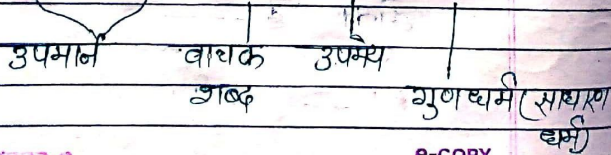 उपमान वाचक उपमेय
शब्द गुणधर्म (साधारण
धर्म)
e-COPY